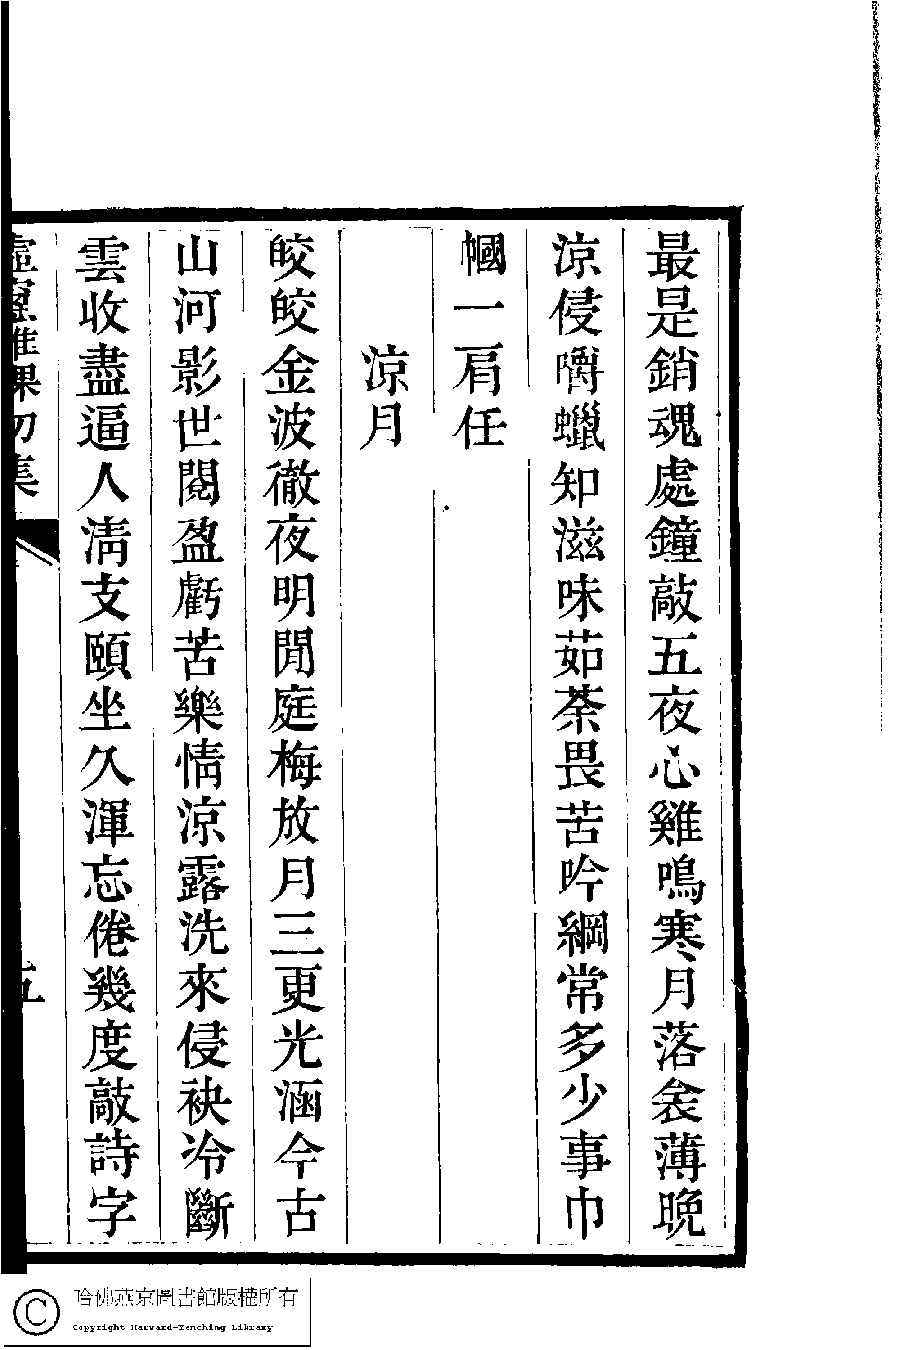 最是銷魂處鐘敲五夜心雞鳴寒月落衾薄晚
涼侵嚼蠟知滋味茹荼畏苦吟綱常多少事巾
幗一肩任
涼月
皎皎金波徹夜明閒庭梅放月三更光涵今古
山河影世閱盈虧苦樂情涼露洗來侵袂冷斷
雲收盡逼人淸支頤坐久渾忘倦幾度敲詩字
五
哈佛燕京圖書館版權所有
Copyright Harvard-Yenching Library